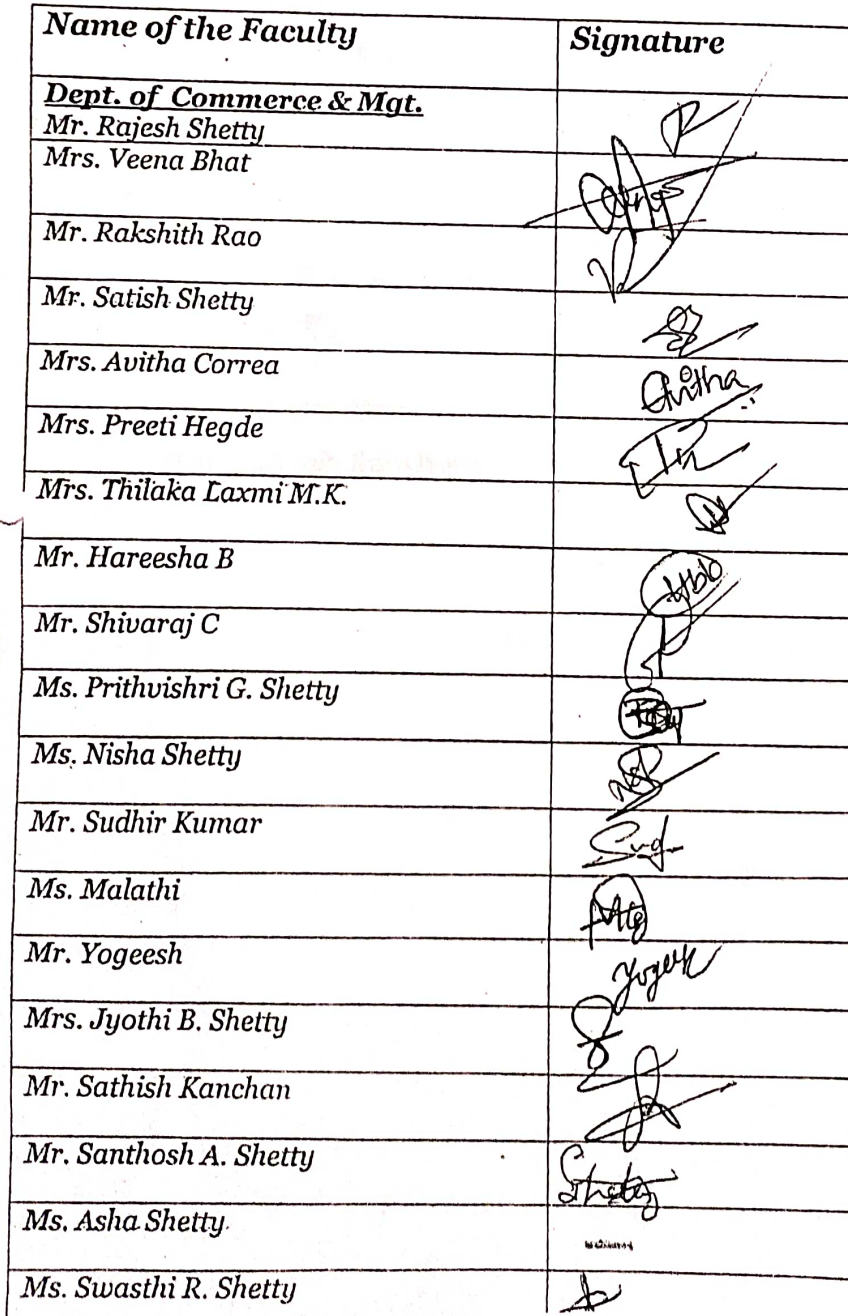 Name of the Faculty Signature
Dept. of Commerce & Mgt.
Mr. Rajesh Shetty
Mrs. Veena Bhat
Mr. Rakshith Rao
Mr. Satish Shetty
Mrs. Avitha Correa Avitha
Mrs. Preeti Hegde
Mrs. Thilaka Laxmi M.K.
Mr. Hareesha B
Mr. Shivaraj C
Ms. Prithvishri G. Shetty
Ms. Nisha Shetty
Mr. Sudhir Kumar
Ms. Malathi
Mr. Yogeesh
Mrs. Jyothi B. Shetty
Mr. Sathish Kanchan
Mr. Santhosh A. Shetty
Ms. Asha Shetty
Ms. Swasthi R. Shetty